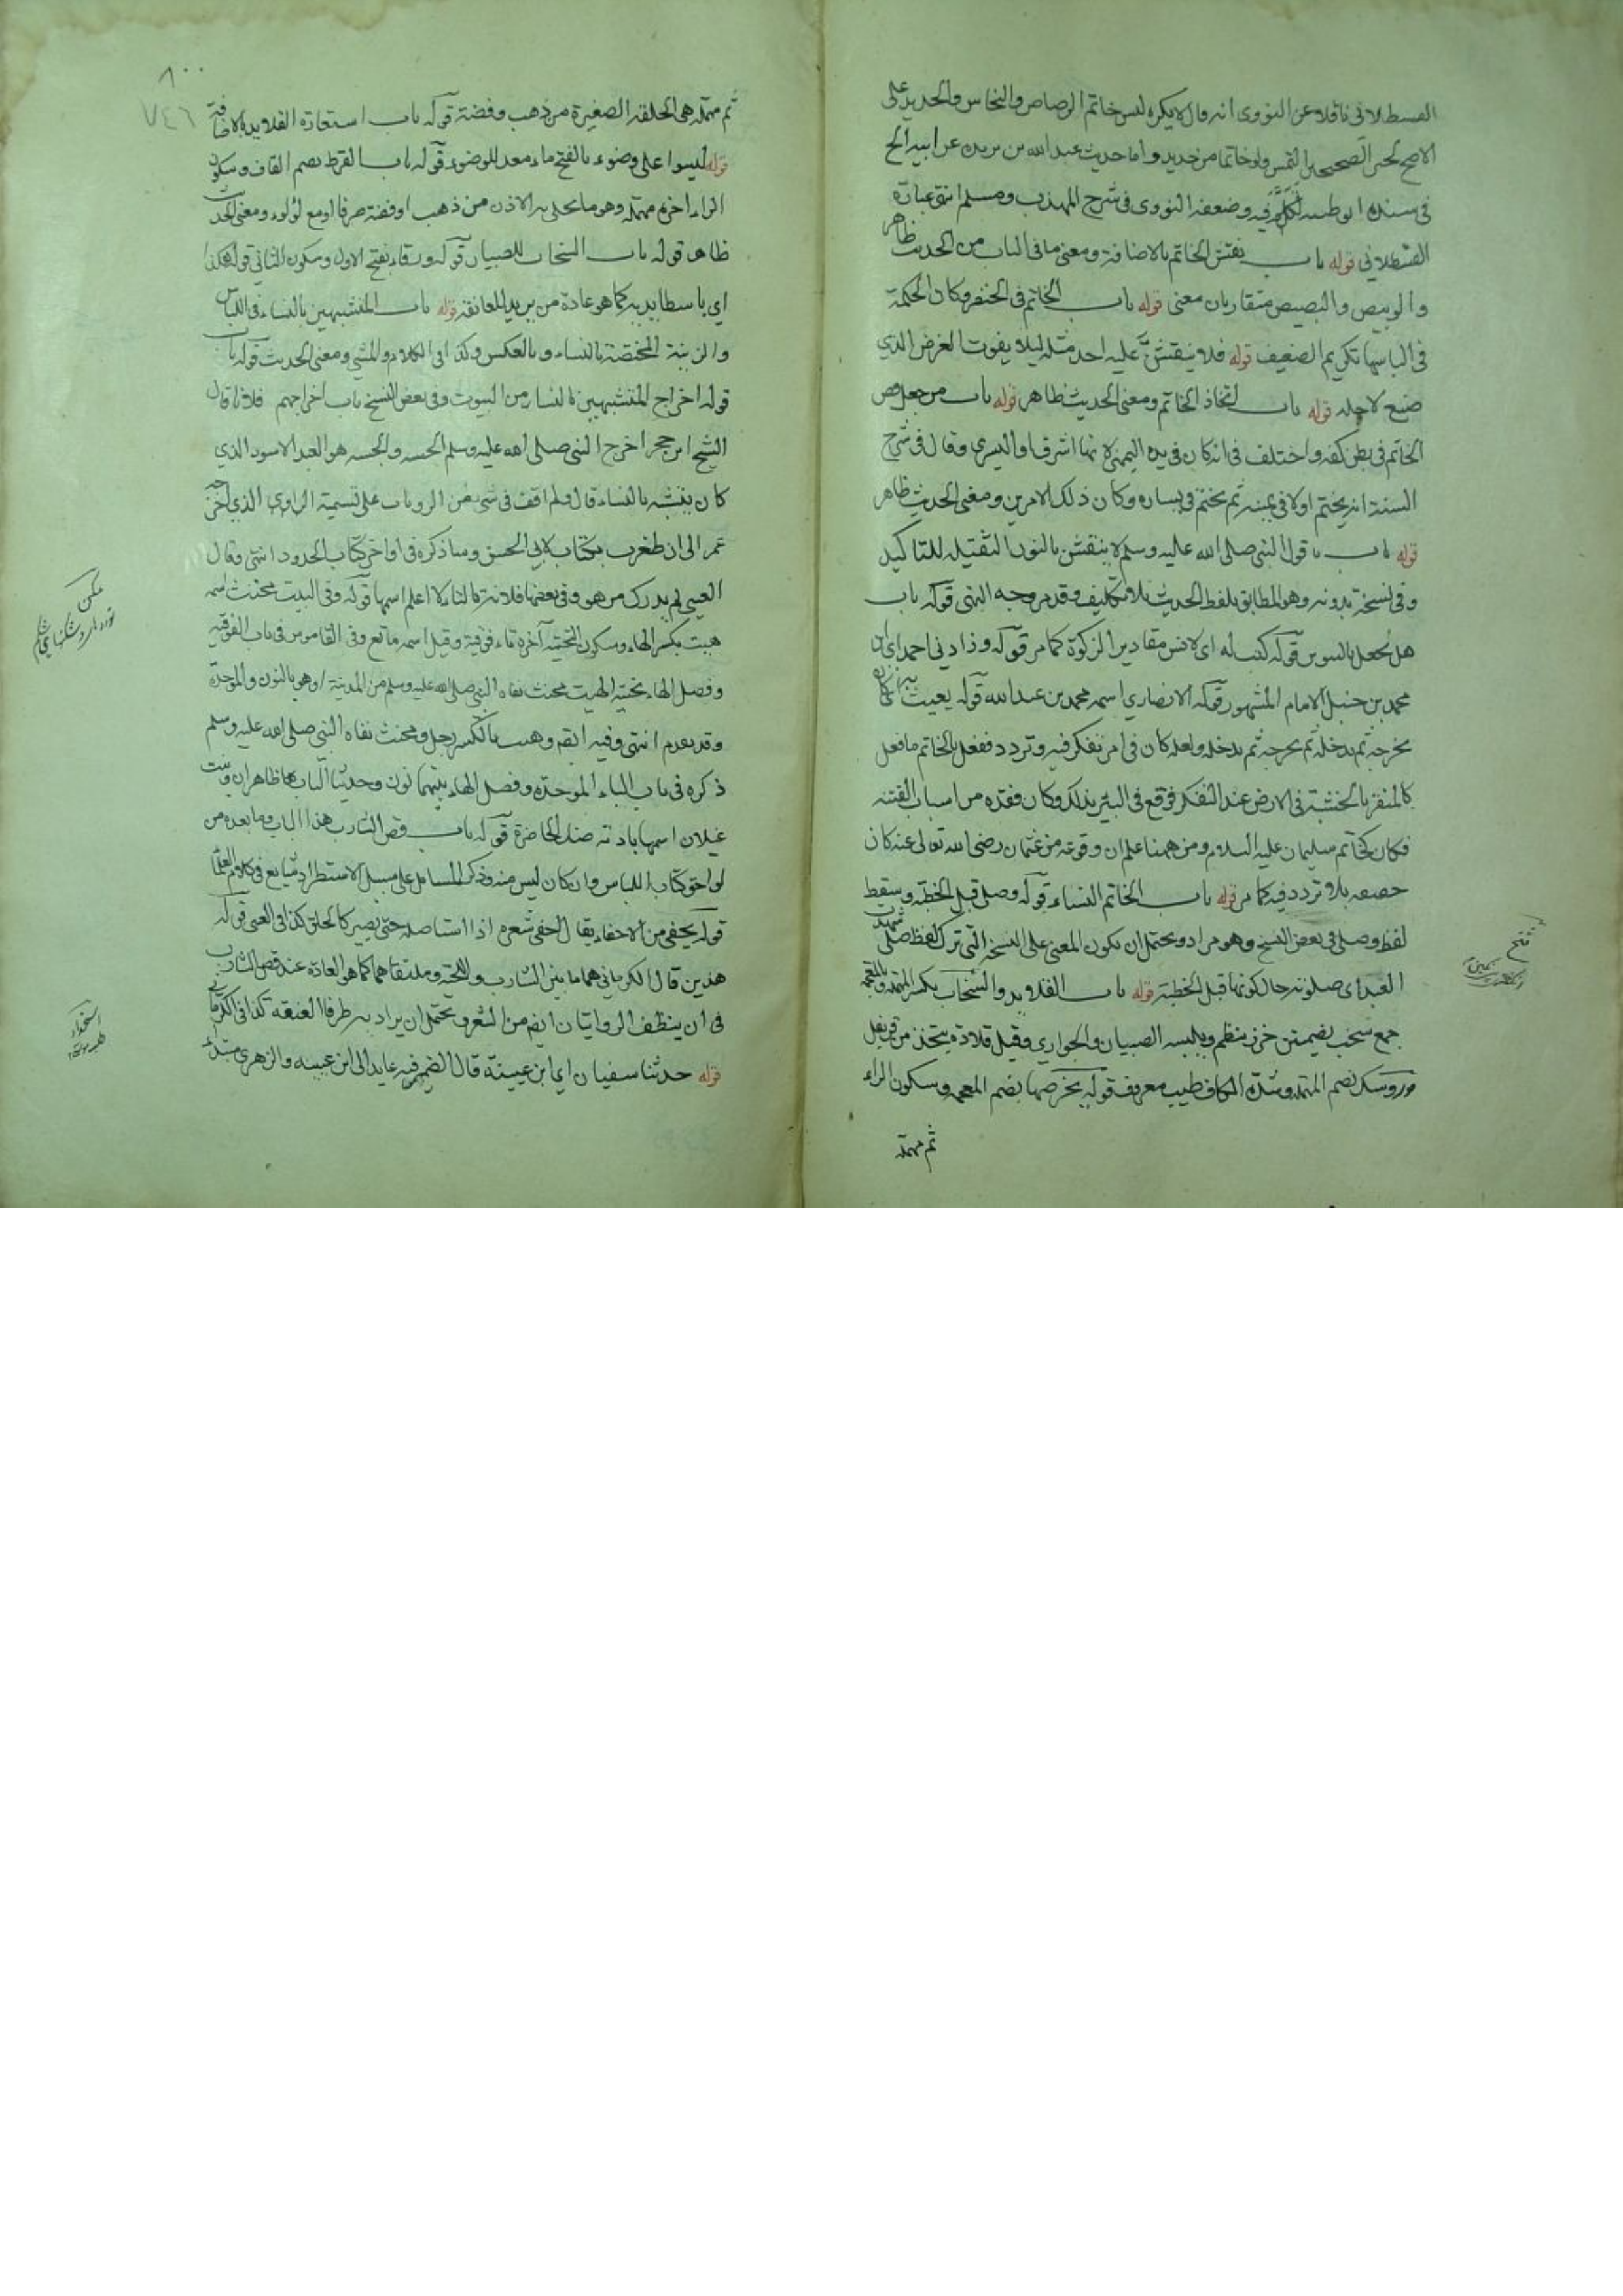 القسطلاني ناقلا عن النووي انه قال لا يكره لبس خاتم الرصاص والنحاس والحديد على
الاصح لخبر الصحيحين التمس ولو خاتما من حديد واما حديث عبد الله بن بريده عن ابيه الخ
في سنده ابو طيبه تكلم فيه وضعفه النووي في شرح المهذب ومسلم انتهى عبارة
القسطلاني قوله باب نقش الخاتم بالاضافة ومعنى ما في الباب من الحديث ظاهر
والوبيص والبصيص متقاربان معنى قوله باب الخاتم في الخنصر وكان الحكمة
في الباسها تكريم الضعيف قوله فلا ينقش عليه احد مثله ليلا يفوت الغرض الذي
صنع لاجله قوله باب اتخاذ الخاتم ومعنى الحديث ظاهر قوله باب من جعل فص
الخاتم في بطن كفه واختلف في انه كان في يده اليمنى لانها اشرف او اليسرى وقال في شرح
السنة انه يختم اولا في يمينه ثم يختم في يساره وكان ذلك الامرين ومعنى الحديث ظاهر
قوله باب قول النبي صلى الله عليه وسلم لا ينقش بالنون الثقيله للتاكيد
وفي نسخة بدونه وهو المطابق بلفظ الحديث بلا تكليف وقد مر وجه النهي قوله باب
هل يجعل قوله كتب له اي لانس مقادير الزكوة كما مر قوله وزادني احمد اي ابن
محمد بن حنبل الامام المشهور قوله الانصاري اسمه محمد بن عبد الله قوله يعبث
يخرجه ثم يدخله ثم يخرجه ثم يدخله ولعله كان في امر يتفكر فيه وتردد ففعل بالخاتم ما فعل
بالخشبة في الارض عند التفكر فوقع في البئر بذلك وكان فقده من اسباب الفتنه
فكان كخاتم سليمان عليه السلام ومن ههنا علم ان وقوعه من عثمان رضي الله تعالى عنه كان
بلا تردد فيه كما مر قوله باب الخاتم للنساء قوله وصلى قبل الخطبة وسقط
لفظ وصلى في بعض النسخ وهو مراد ويحتمل ان يكون المعنى على النسخه التي ترك لفظ صلى شهدت
العيد اي صلوته حال كونها قبل الخطبة قوله باب القلايد والسخاب بكسر المهمله وبالمعجمه
جمع سخب بضمتين خرز ينظم ويلبسه الصبيان والجواري وقيل قلادة يتخذ من قرنفل
وسك بضم المهمله وشدة الكاف طيب معروف قوله بخرصها بضم المعجمه وسكون الراء
ثم مهملة
٨٠٠
٧٤٦
ثم مهمله هي الحلقه الصغيرة من ذهب وفضة قوله باب استعارة القلايد بالاضافة
قوله ليسوا على وضوء بالفتح ماء معد للوضوء قوله باب القرط بضم القاف وسكون
الراء اخره مهملة وهو ما يحلى به الاذن من ذهب او فضة صرفا او مع لؤلوء ومعنى الحديث
ظاهر قوله باب السخاب للصبيان قوله ورقاء بفتح الاول وسكون الثاني قوله هكذا
اي باسطا يديه كما هو عادة من يريد المعانقة قوله باب المتشبهين بالنساء في اللباس
والزينة المختصة بالنساء وبالعكس وكذا في الكلام والمشي ومعنى الحديث قوله باب
قوله اخراج المتشبهين بالنساء من البيوت وفي بعض النسخ باب اخراجهم فلانا قال
الشيخ ابن حجر اخرج النبي صلى الله عليه وسلم هو العبد الاسود الذي
كان يتشبه بالنساء قال ولم اقف في شئ من الروايات على تسمية الراوي الذي اخرجه
عمر الى ان ظفرت بكتاب لابي الحسن وساذكره في اواخر كتاب الحدود انتهى وقال
العيني لم يدرك من هو وفي بعضها فلانة بالتاء لا اعلم اسمها قوله وفي البيت مخنث اسمه
هيت بكسر الهاء وسكون التحتيه آخره تاء فوقية وقيل اسمه ماتع وفي القاموس في باب الفوقيه
وفصل الهاء بتحتيه الهيت مخنث نفاه النبي صلى الله عليه وسلم من المدينة او هو بالنون والموحدة
وقد تقدم انتهى وفيه ايضم وهنب بالكسر رجل ومخنث نفاه النبي صلى الله عليه وسلم
ذكره في باب الباء الموحدة وفصل الهاء بينهما نون وحديثا الباب هما ظاهران وبنت
غيلان اسمها بادنه ضد الحاضرة قوله باب قص الشارب هذا الباب وما بعده من
لواحق كتاب اللباس وان كان ليس منه وذكر المسائل على سبيل الاستطراد شايع في كلام العلما
قوله يحفي من الاحفاء يقال احفى شعره اذا استاصله حتى يصير كالحلق كذا في العيني قوله
هذين قال الكرماني هما ما بين الشارب واللحية وملتقاهما كما هو العادة عند قص الشارب
في ان ينظف الزاويتان ايضم من الشعر ويحتمل ان يراد به طرفا العنفقه كذا في الكرماني
قوله حدثنا سفيان اي ابن عيينة قال الضمير فيه عايد الى ابن عيينه والزهري مبتدأ